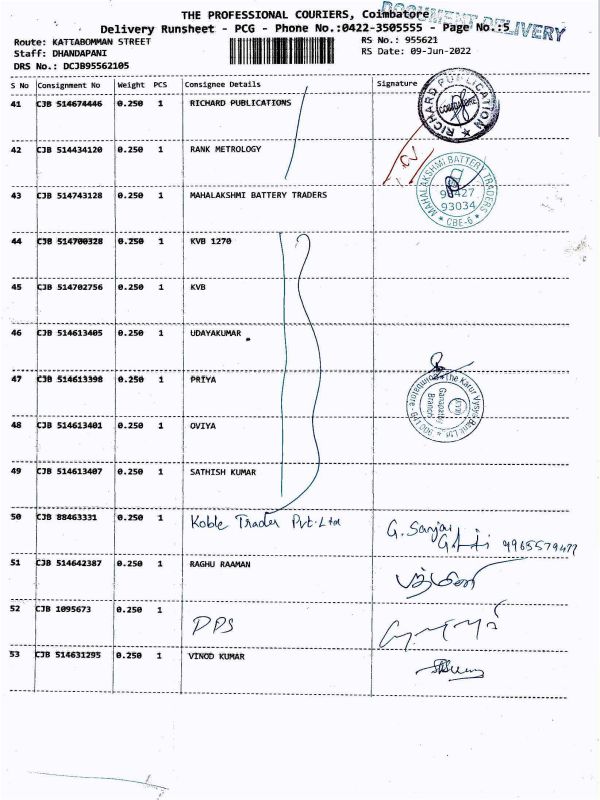 THE PROFESSIONAL COURIERS, Coimbatore
DOCUMENT DELIVERY
Delivery Runsheet - PCG - Phone No.:0422-3505555 - Page No.:5
Route: KATTABOMMAN STREET
RS No.: 955621
Staff: DHANDAPANI
RS Date: 09-Jun-2022
DRS No.: DCJB95562105
S No Consignment No Weight PCS Consignee Details Signature
41 CJB 514674446 0.250 1 RICHARD PUBLICATIONS
RICHARD PUBLICATION
COIMBATORE
42 CJB 514434120 0.250 1 RANK METROLOGY
43 CJB 514743128 0.250 1 MAHALAKSHMI BATTERY TRADERS
MAHALAKSHMI BATTERY TRADERS
93034
CBE-6
44 CJB 514700328 0.250 1 KVB 1270
45 CJB 514702756 0.250 1 KVB
46 CJB 514613405 0.250 1 UDAYAKUMAR
47 CJB 514613398 0.250 1 PRIYA
The Karur Vysya Bank Ltd
Ganapathy
Branch
48 CJB 514613401 0.250 1 OVIYA
49 CJB 514613407 0.250 1 SATHISH KUMAR
50 CJB 88463331 0.250 1 Koble Trader Pvt.Ltd G. Sanjai
51 CJB 514642387 0.250 1 RAGHU RAAMAN
52 CJB 1095673 0.250 1 PPS
53 CJB 514631295 0.250 1 VINOD KUMAR